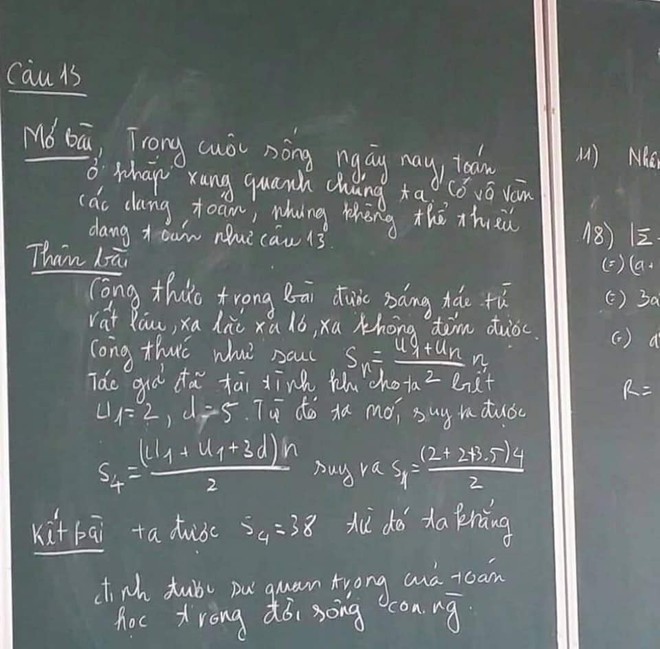 Câu 13
Mở bài, Trong cuộc sống ngày nay, toán
ở khắp xung quanh chúng ta. Có vô vàn
các dạng toán, nhưng không thể thiếu
dạng toán như câu 13.
Thân bài
Công thức trong bài được sáng tác từ
rất lâu, xa lắc xa ló, xa không đếm được.
Công thức như sau Sn = (U1 + Un)/2 n
Tác giả đã tài tình khi cho ta biết
U1 = 2, d = 5. Từ đó ta mới suy ra được
S4 = (U1 + U1 + 3d)n / 2 suy ra S4 = (2 + 2 + 3.5)4 / 2
Kết bài ta được S4 = 38 từ đó ta khẳng
định được sự quan trọng của toán
học trong đời sống con ng.
11) Nhân
18) |Σ
(=) (a.
(=) 3a
(=) a
R =